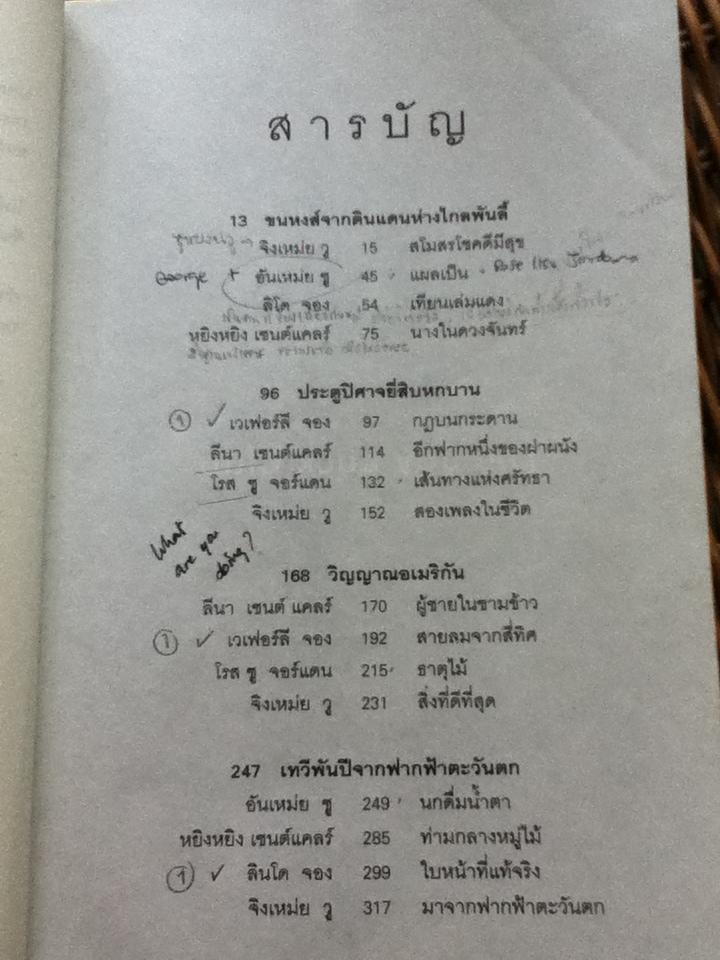 สารบัญ
13 ขนหงส์จากดินแดนห่างไกลพันลี้
จิงเหม่ย วู 15 สโมสรโชคดีมีสุข
George + อันเหม่ย ซู 45 แผลเป็น Rose
ลินโด จอง 54 เทียนเล่มแดง
หยิงหยิง เซนต์แคลร์ 75 นางในดวงจันทร์
96 ประตูปีศาจยี่สิบหกบาน
1 ✓ เวเฟอร์ลี จอง 97 กฎบนกระดาน
ลีนา เซนต์แคลร์ 114 อีกฟากหนึ่งของฝาผนัง
โรส ซู จอร์แดน 132 เส้นทางแห่งศรัทธา
จิงเหม่ย วู 152 สองเพลงในชีวิต
What
are you
doing?
168 วิญญาณอเมริกัน
ลีนา เซนต์ แคลร์ 170 ผู้ชายในชามข้าว
1 ✓ เวเฟอร์ลี จอง 192 สายลมจากสี่ทิศ
โรส ซู จอร์แดน 215 ธาตุไม้
จิงเหม่ย วู 231 สิ่งที่ดีที่สุด
247 เทวีพันปีจากฟากฟ้าตะวันตก
อันเหม่ย ซู 249 นกดื่มน้ำตา
หยิงหยิง เซนต์แคลร์ 285 ท่ามกลางหมู่ไม้
1 ✓ ลินโด จอง 299 ใบหน้าที่แท้จริง
จิงเหม่ย วู 317 มาจากฟากฟ้าตะวันตก